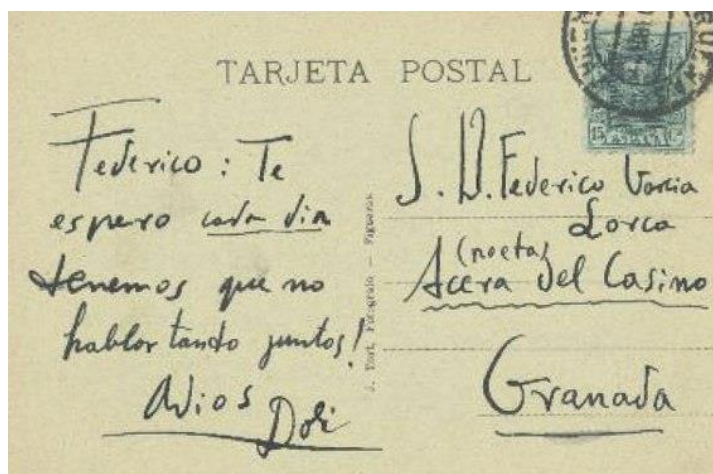 TARJETA POSTAL
15 Cs
ESPAÑA
Federico : Te
espero cada dia
tenemos que no
hablar tando juntos!
Adios
Dali
J. Fotógrafo — Figueras
S. D. Federico Garcia
Lorca
(poeta)
Acera del Casino
Granada